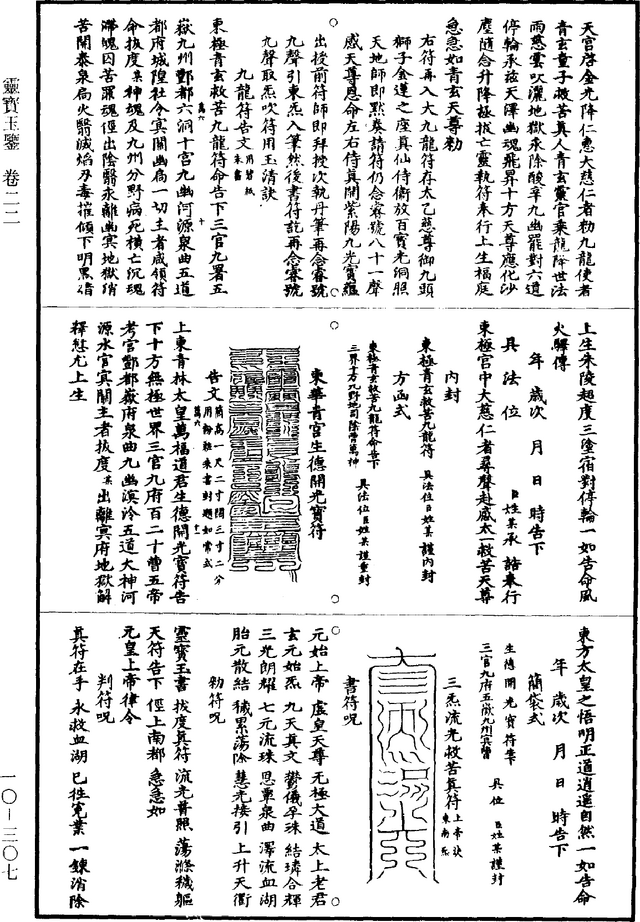 靈寶玉鑒 卷二二
一〇—三〇七
天宮啓金光降仁惠大慈仁者勑九龍使者
青玄童子救苦真人青玄黨官乘龍降世法
雨慈雲吹灑地獄永除酸辛九幽罷對六道
停輪承茲天澤幽魂飛昇十方天尊應化沙
塵隨念升降拯拔亡靈執符奉行上生福庭
急急如青玄天尊勑
右符再入大九龍符存太乙慈尊御九頭
獅子金蓮之座真仙侍衛放百寶光洞照
天地師即默奏請符仍念寶號八十一聲
感天尊恩命左右侍真開紫陽九光寶蘊
出授前符師即拜授次執丹筆再念寶號
九聲引東炁入筆然後書符訖再念寶號
九聲取炁吹符用玉清訣
九龍符告文用黃紙朱書
東極青玄救苦九龍符命告下三官九署五
嶽九州酆都六洞十宮九幽河源泉曲五道
都府城隍社令冥關幽扃一切主者咸領符
命拔度某神魂及九州分野病死橫亡沉魂
滯魄囚苦羅魂徑出陰翳永離幽冥地獄停
苦關泰泉扃火翳滅焰刃毒摧傾下明黑信
上生朱陵超度三塗宿對停輪一如告命風
火驛傳
年 歲次 月 日 時告下
具法位 臣姓某承 誥奉行
東極宮中大慈仁者尋聲赴感太一救苦天尊
內封
東極青玄救苦九龍符 具法位臣姓某謹內封
方函式
東極青玄救苦九龍符命告下
三界十方九野地司陰官萬神 具法位臣姓某謹重封
東華青宮生德開光寶符
告文簡高一尺二寸闊三寸二分
用粉牌朱書封題如常式
上東青林太皇萬福道君生德開光寶符告
下十方無極世界三官九府百二十曹五帝
考官酆都嶽府泉曲九幽溟泠五道大神河
源水官冥關主者拔度某出離冥府地獄解
釋愆尤上生
東方太皇之悟明正道逍遥自然一如告命
年 歲次 月 日 時告下
簡袋式
生德開光寶符告下
三官九府五嶽九州冥曹 具位 臣姓某謹封
三炁流光救苦真符上帝訣東南炁
書符呪
元始上帝 虛皇天尊 无極大道 太上老君
玄元始炁 九天真文 鬱儀孕珠 結璘合輝
三光朗耀 七元流珠 恩覃泉曲 澤流血湖
胎元散結 穢累蕩除 慈光接引 上升天衢
勑符呪
靈寶玉書 拔度真符 流光普照 蕩滌穢軀
天符告下 徑上南都 急急如
元皇上帝律令
判符呪
真符在手 永救血湖 已往寃業 一鍊消除